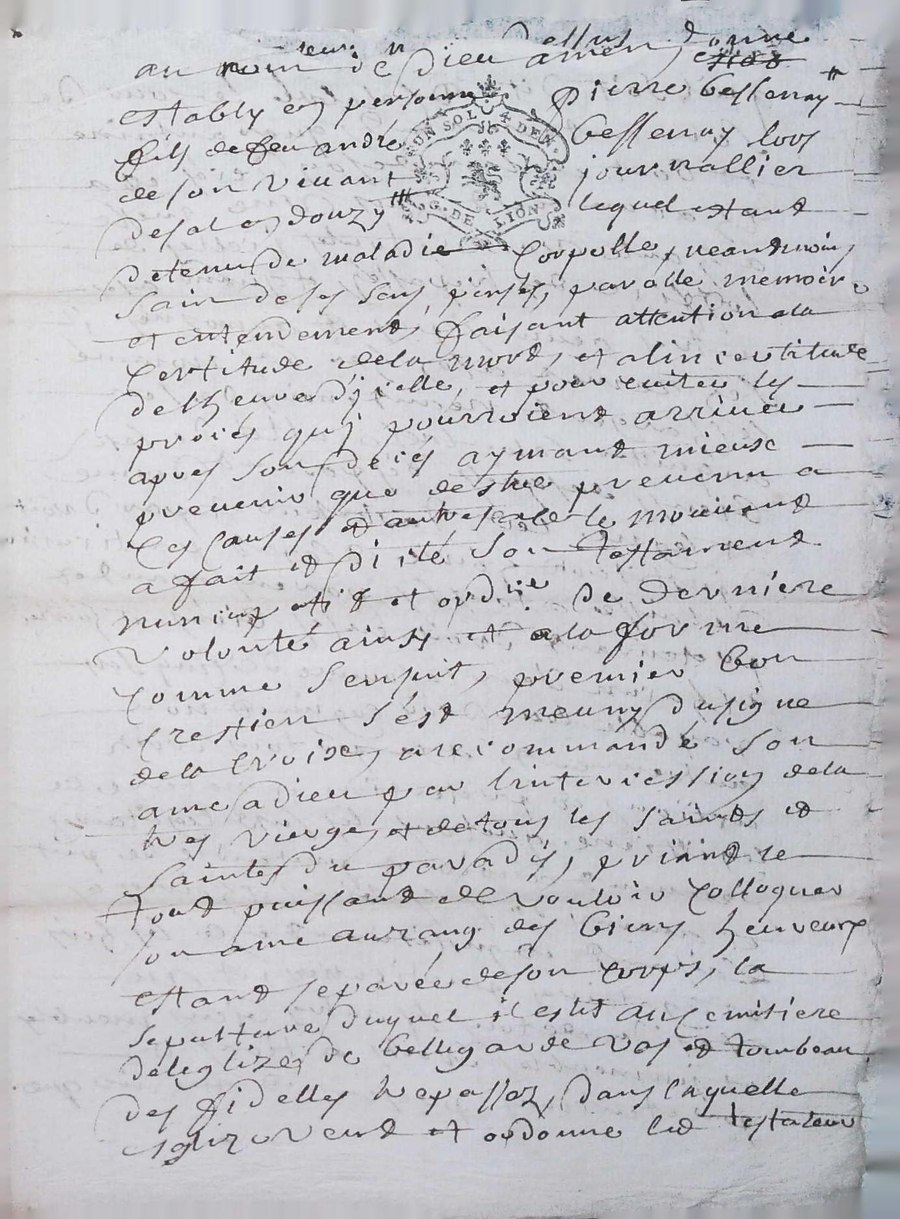 au nom de Dieu amen,
establÿ en personne Pierre bessenay
fils de feu andré bessenay lors
de son vivant journallier
de salt en douzy lequel estant
UN SOL 4 DEN
G. DE LION
detenu de maladie corpolle, neantmoins
sain de ses sens, parolle memoire
et entendement, faisant attention a la
certitude de la mort, et a lincertitude
de lheure dicelle, et pour eviter les
proces quj pourroient arriver
apres son deces aymant mieux
prevenir que destre prevenu a
ces causes et autres a ce le mouvant
a fait et dicté son testament
nuncupatif et ordre de derniere
volonté ainsy et a la forme
comme sensuit, premier bon
crestien sest muny du signe
de la croix, a recommandé son
ame a dieu par lintercession de la
tres vierge, et de tous les saints et
saintes du paradis, priant le
tout puissant de vouloir colloquer
son ame au rang des biens heureux
estant separée de son corps, la
sepulture duquel il eslit au cemistiere
de leglize de bellegarde vas et tombeau
des fidelles trepassez, dans laquelle
eglize veut et ordonne led testateur